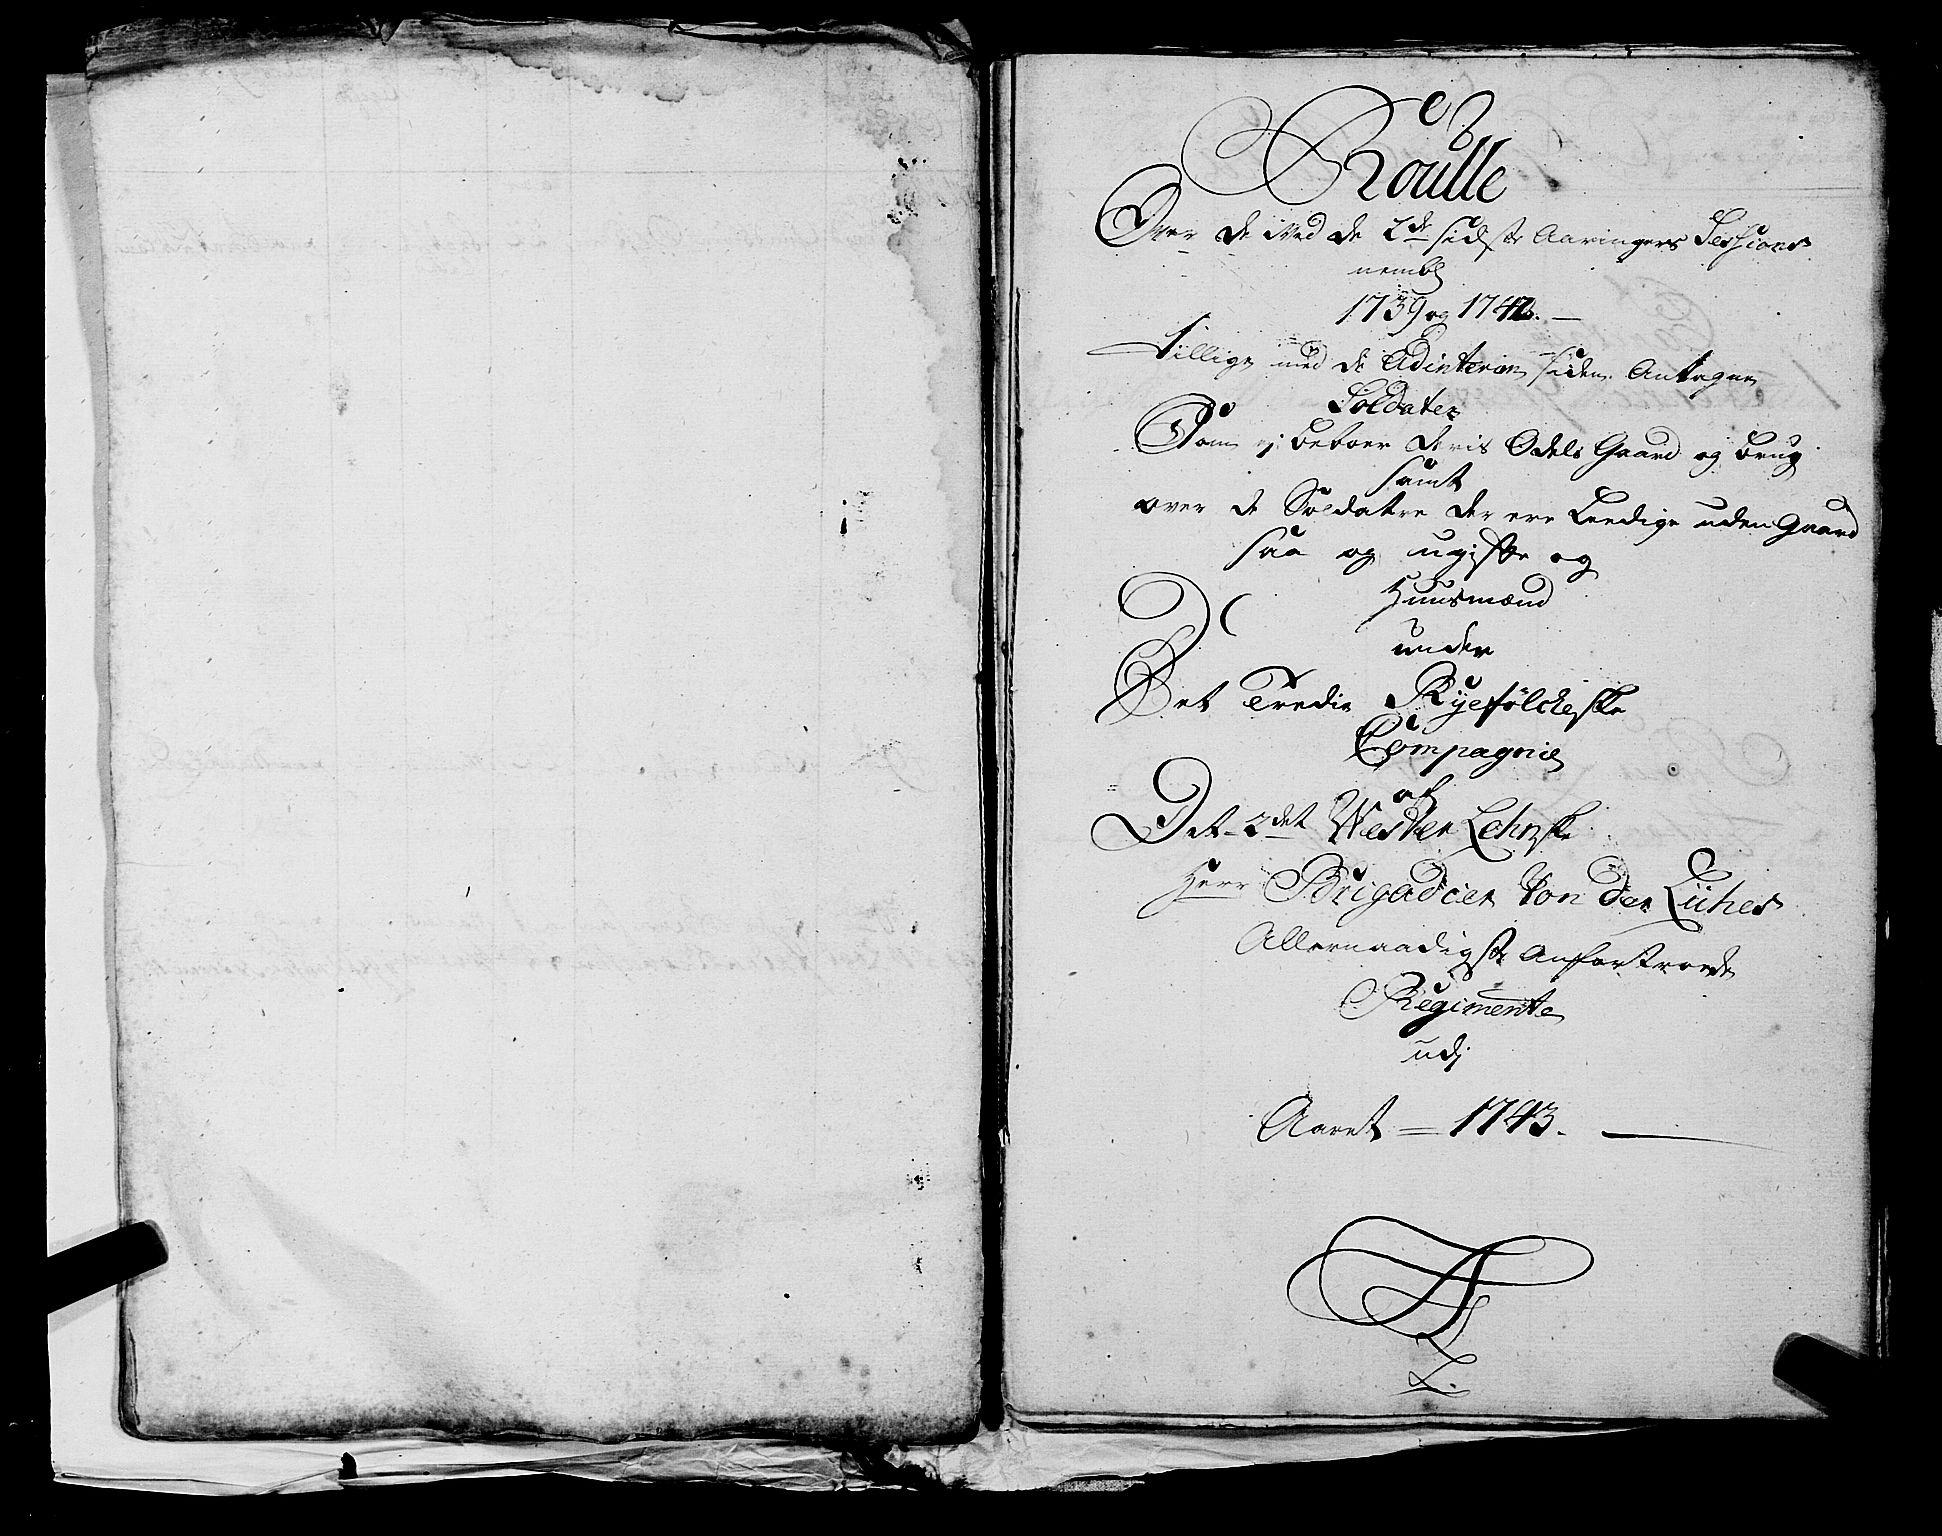 Roulle
Over de ved de 2de sidste Aaringers Sessions
nembl
1739 og 1742. —
Tillige med de Adinterim siden Antagne
Soldater
Som ej beboer deris Odels Gaard og brug
samt
over de Soldatere der ere Leedige uden Gaard
saa og ugifte og
Huusmænd
under
Det Tredie Ryefölckeske
Compagnie
af
Det 2det Wester Lehnske
Herr Brigadier Von der Lühes
Allernaadigste Anfortroede
Regimente
udj
Aaret = 1743. —